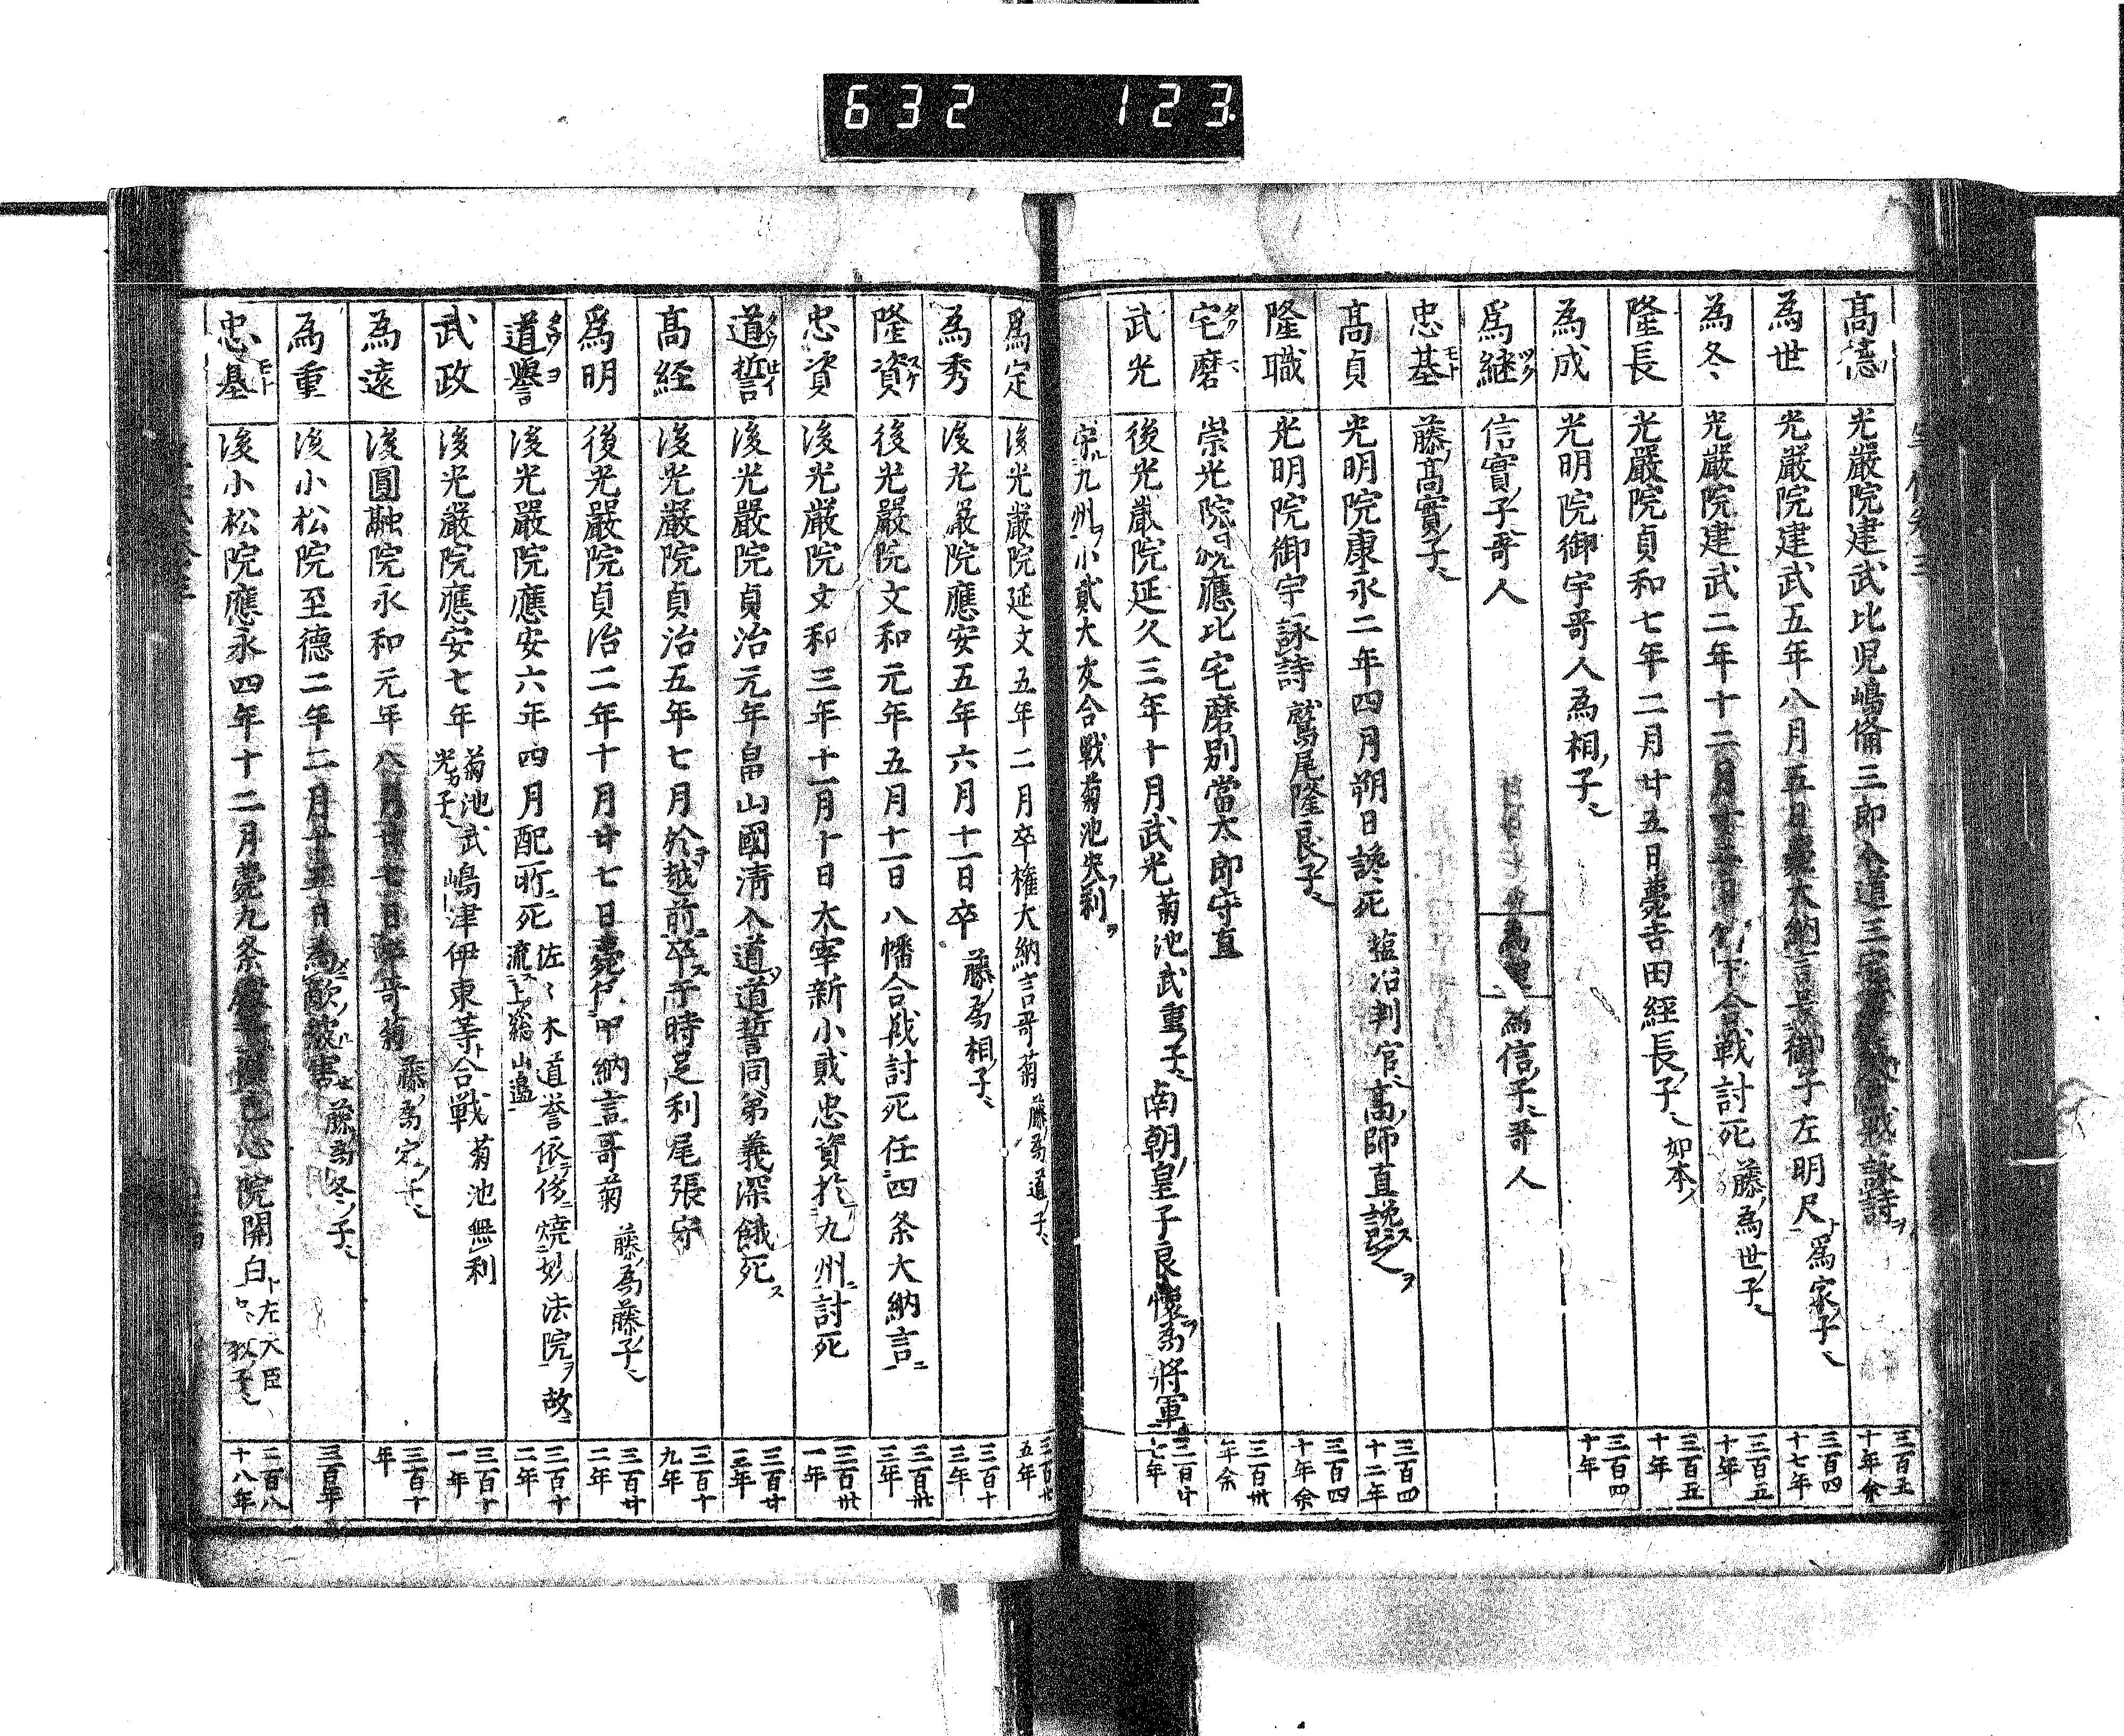 632 123
高德 光嚴院建武比児嶋備三郎入道三宅 戦詠詩ヲ 三百五十年余
為世 光嚴院建武五年八月五日薨大納言 子左明尺 為家ノ子ニ 三百四十七年
為冬 光嚴院建武二年十二月 日竹ノ下合戦討死 藤ノ為世ノ子ニ 三百五十年
隆長 光嚴院貞和七年二月廿五日薨吉田経長ノ子ニ 如本ノ 三百五十年
為成 光明院御宇哥人為相ノ子ニ 三百四十年
為継 信實ノ子哥人 為理 為信ノ子ニ哥人
忠基 藤ノ高實ノ子ニ
高貞 光明院康永二年四月朔日讒死 塩冶判官高ノ師直讒ス之ヲ 三百四十二年
隆職 光明院御宇詠詩 鷲尾隆良ノ子ニ 三百四十年余
宅磨 崇光院 観應ノ比宅磨別當太郎守直 三百卅年余
武光 後光嚴院延久三年十月武光 菊池武重ノ子ニ南朝ノ皇子良懷ヲ為將軍 三百廿七年
守ル九州ヲ小貳大友合戦菊池失利ヲ
為定 後光嚴院延文五年二月卒権大納言哥菊 藤ノ為道ノ子ニ 三百廿五年
為秀 後光嚴院應安五年六月十一日卒 藤ノ為相ノ子ニ 三百十三年
隆資 後光嚴院文和元年五月十一日八幡合戦討死任四条大納言ニ 三百卅三年
忠資 後光嚴院文和三年十一月十日太宰新小貳忠資於九州ニ討死 三百卅一年
道誓 後光嚴院貞治元年畠山國清入道道誓同弟義深餓死ス 三百廿三年
高経 後光嚴院貞治五年七月於越前ニ卒ス于時足利尾張守 三百十九年
為明 後光嚴院貞治二年十月廿七日薨任ニ中納言哥菊 藤ノ為藤ノ子ニ 三百廿二年
道譽 後光嚴院應安六年四月配所ニ死 佐々木道誉依侈ニ焼妙法院ヲ故ニ流ス上総山邉ニ 三百十二年
武政 後光嚴院應安七年 菊池武光カ子ニ 嶋津伊東等ト合戦 菊池無利 三百十一年
為遠 後圓融院永和元年八月廿七日卒哥菊 藤ノ為定ノ子ニ 三百十年
為重 後小松院至德二年二月十五日為敵ノ被害セ 藤ノ為冬ノ子ニ 三百年
忠基 後小松院應永四年十二月薨九条 己心院關白ト 左大臣 教ノ子ニ 二百八十八年